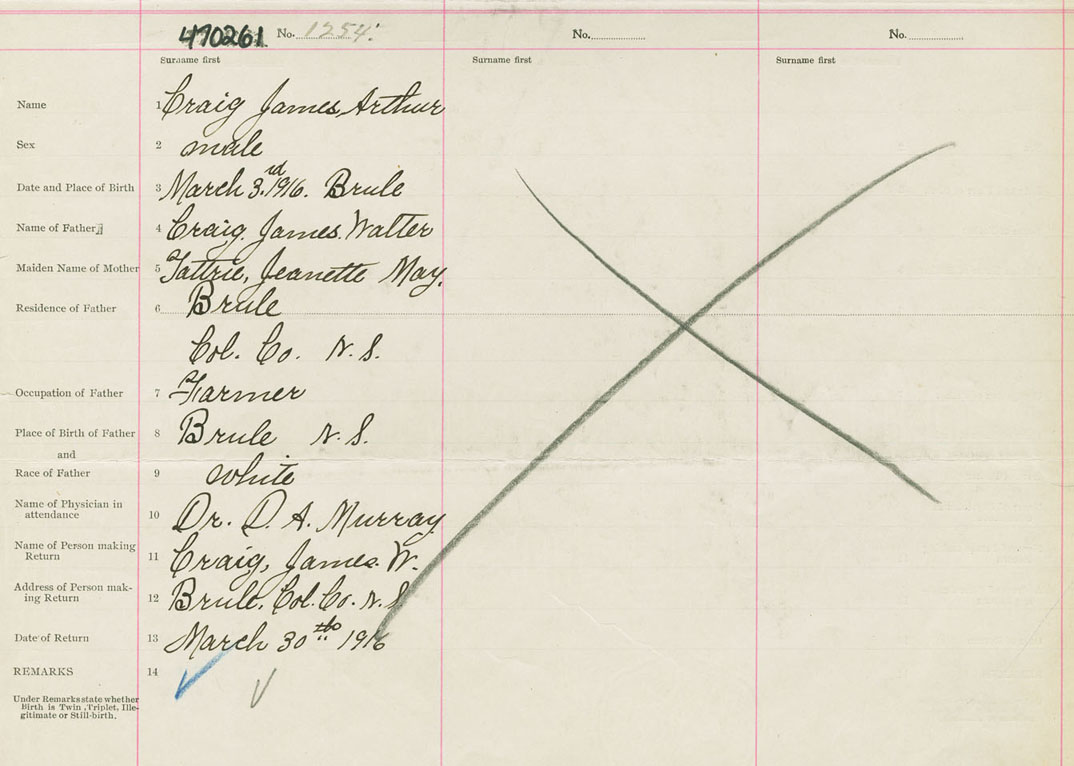 470261 No. 1254. No. No.
Surname first Surname first Surname first
Name 1 Craig James Arthur
Sex 2 male
Date and Place of Birth 3 March 3.rd 1916. Brule
Name of Father 4 Craig. James. Walter
Maiden Name of Mother 5 Tattrie, Jeanette May.
Residence of Father 6 Brule
Col. Co. N. S.
Occupation of Father 7 Farmer
Place of Birth of Father 8 Brule N. S.
and
Race of Father 9 white
Name of Physician in
attendance 10 Dr. D. A. Murray
Name of Person making
Return 11 Craig, James. W.
Address of Person mak-
ing Return 12 Brule. Col. Co. N. S
Date of Return 13 March 30th 1916
REMARKS 14
Under Remarks state whether
Birth is Twin, Triplet, Ille-
gitimate or Still-birth.